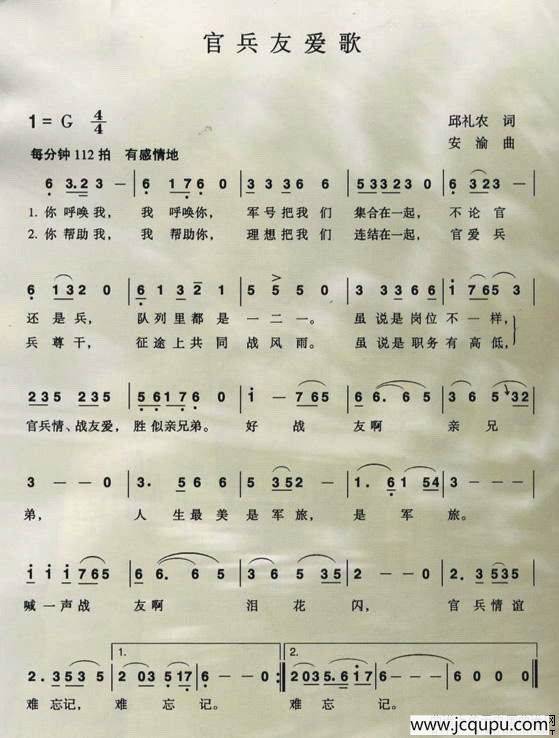 官兵友爱歌
1=G 4/4
邱礼农 词
每分钟112拍 有感情地
安渝 曲
6 3.2 3 - | 6 1.7 6 0 | 3 3 3 6 6 | 5 3 3 2 3 0 | 6 3 2 3 - |
1. 你呼唤我， 我 呼唤你， 军号把我们 集合在一起， 不论官
2. 你帮助我， 我 帮助你， 理想把我们 连结在一起， 官爱兵
6 1 3 2 0 | 6. 1 3 2 1 | 5 5 5 0 | 3 3 3 6 6 | 1 7 6 5 3 |
还是兵， 队列里都是 一二一。 虽说是岗位不一样，
兵尊干， 征途上共同 战风雨。 虽说是职务有高低，
2 3 5 2 3 5 | 5 6 1 7 6 0 | i - 7 6 5 | 6 6. 6 5 | 3 6 5 3 2 |
官兵情、战友爱， 胜似亲兄弟。 好战 友啊 亲兄
3 - - 0 | 3. 5 6 6 | 5 6 3 - | 0 6 1 5 4 | 3 - - - |
弟， 人生最美 是军旅， 是军旅。
i i i 7 6 5 | 6 6. 6 5 | 3 6 5 3 5 | 2 - - 0 | 2. 3 5 3 |
喊一声战 友啊 泪花 闪， 官兵情谊
1. 2.
2. 3 5 3 5 | 2 0 3 5 1 7 | 6 - - 0 :| 2 0 3 5. 6 1 7 | 6 - - - | 6 0 0 0 ||
难忘记， 难忘记。 难忘 记。
www.jcqupu.com